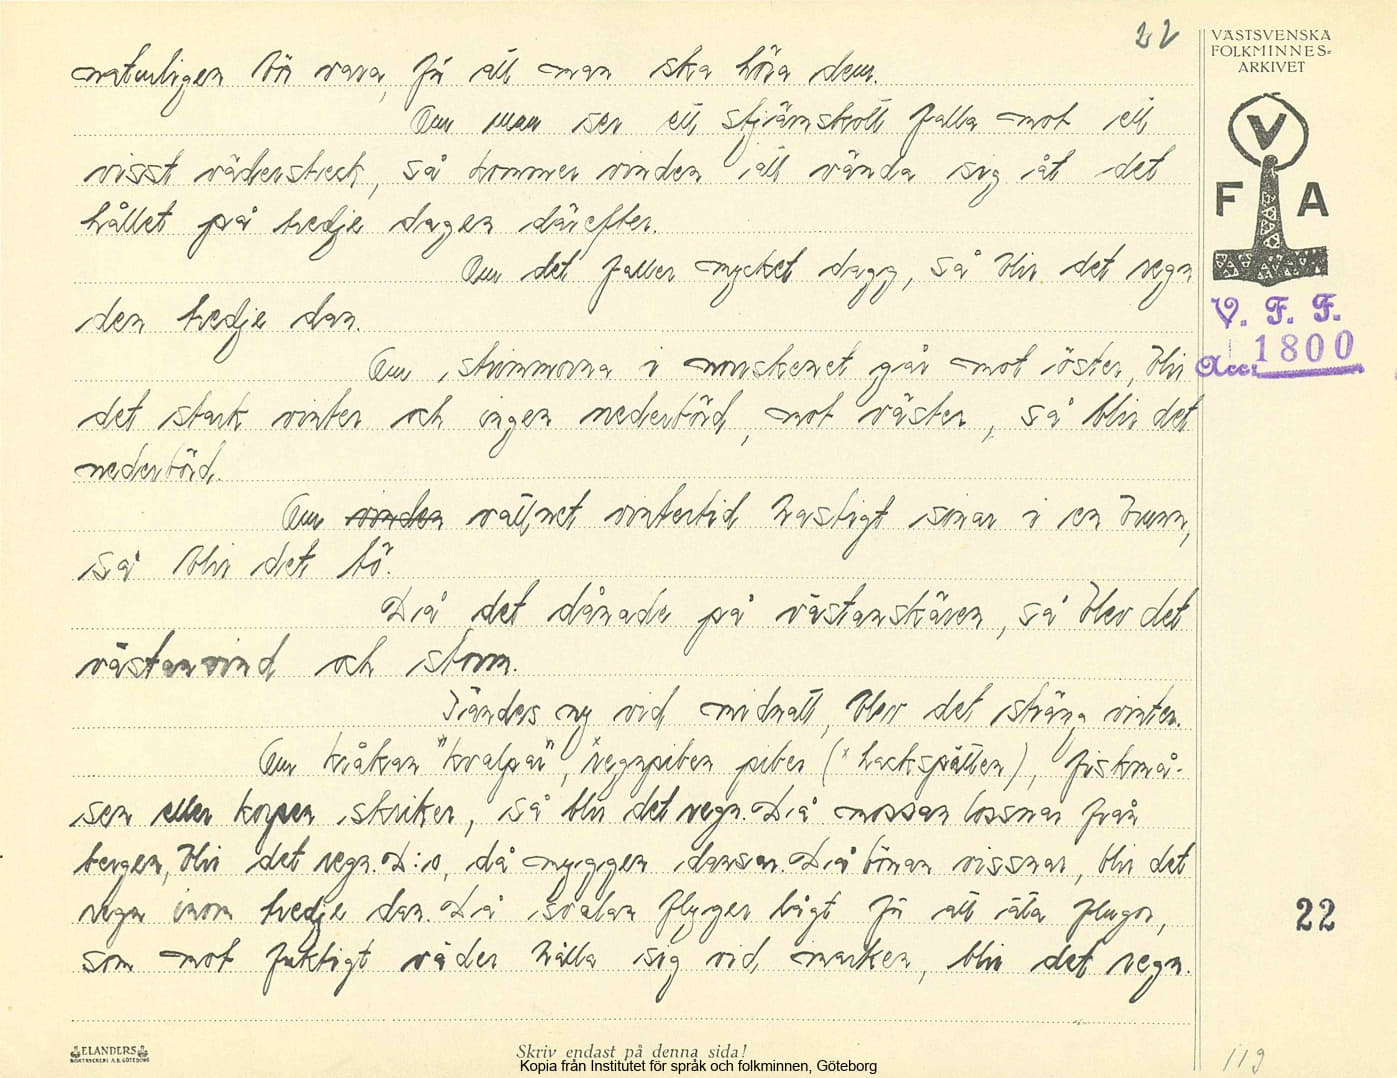 22
VÄSTSVENSKA
FOLKMINNES-
ARKIVET
V
F A
V. F. F.
Acc: 1800
naturligen bör vara, för att man ska höra dem.
Om man ser ett stjärnskott falla mot ett
visst väderstreck, så kommer vinden att vända sig åt det
hållet på tredje dagen därefter.
Om det faller mycket dagg, så blir det regn
den tredje dan.
Om strimmorna i norrskenet går mot öster, blir
det stark vinter och ingen nederbörd, mot väster, så blir det
nederbörd.
Om vinden vattnet vintertid hastigt sinar i en brunn,
så blir det tö.
Då det dånade på västanskären, så blev det
västanvind och storm.
Tändes ny vid midnatt, blev det sträng vinter.
Om kråkan "kvalpar", ˣregnpiben piber (ˣ hackspätten), fiskmå-
sen eller korpen skriker, så blir det regn. Då mossan lossnar från
bergen, blir det regn. D:o, då myggen dansar. Då bönan vissnar, blir det
regn inom tredje dan. Då svalan flyger lågt för att äta flugor,
som mot fuktigt väder hålla sig vid marken, blir det regn.
22
ELANDERS
BOKTRYCKERI A.B. GÖTEBORG
Skriv endast på denna sida!
Kopia från Institutet för språk och folkminnen, Göteborg
119